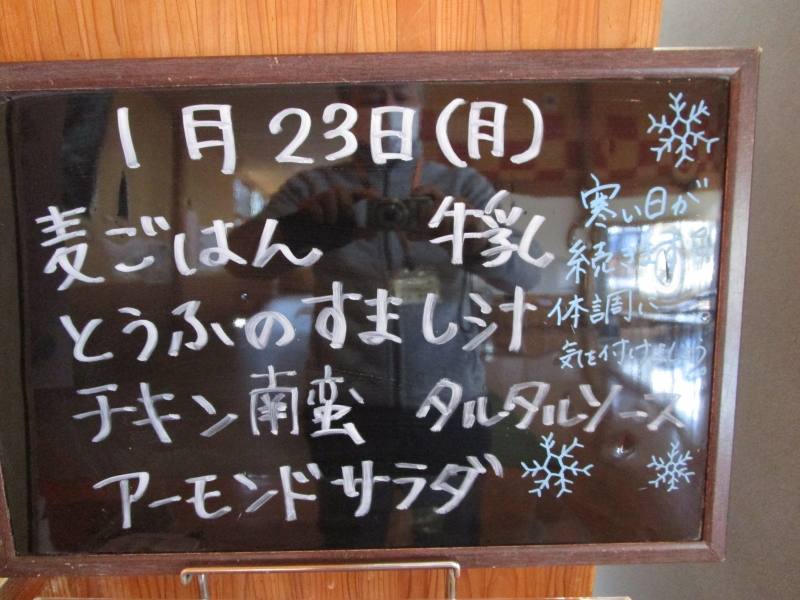 1月23日(月)
麦ごはん 牛乳
とうふのすまし汁
チキン南蛮 タルタルソース
アーモンドサラダ
寒い日が
続きます
体調に
気を付けましょう